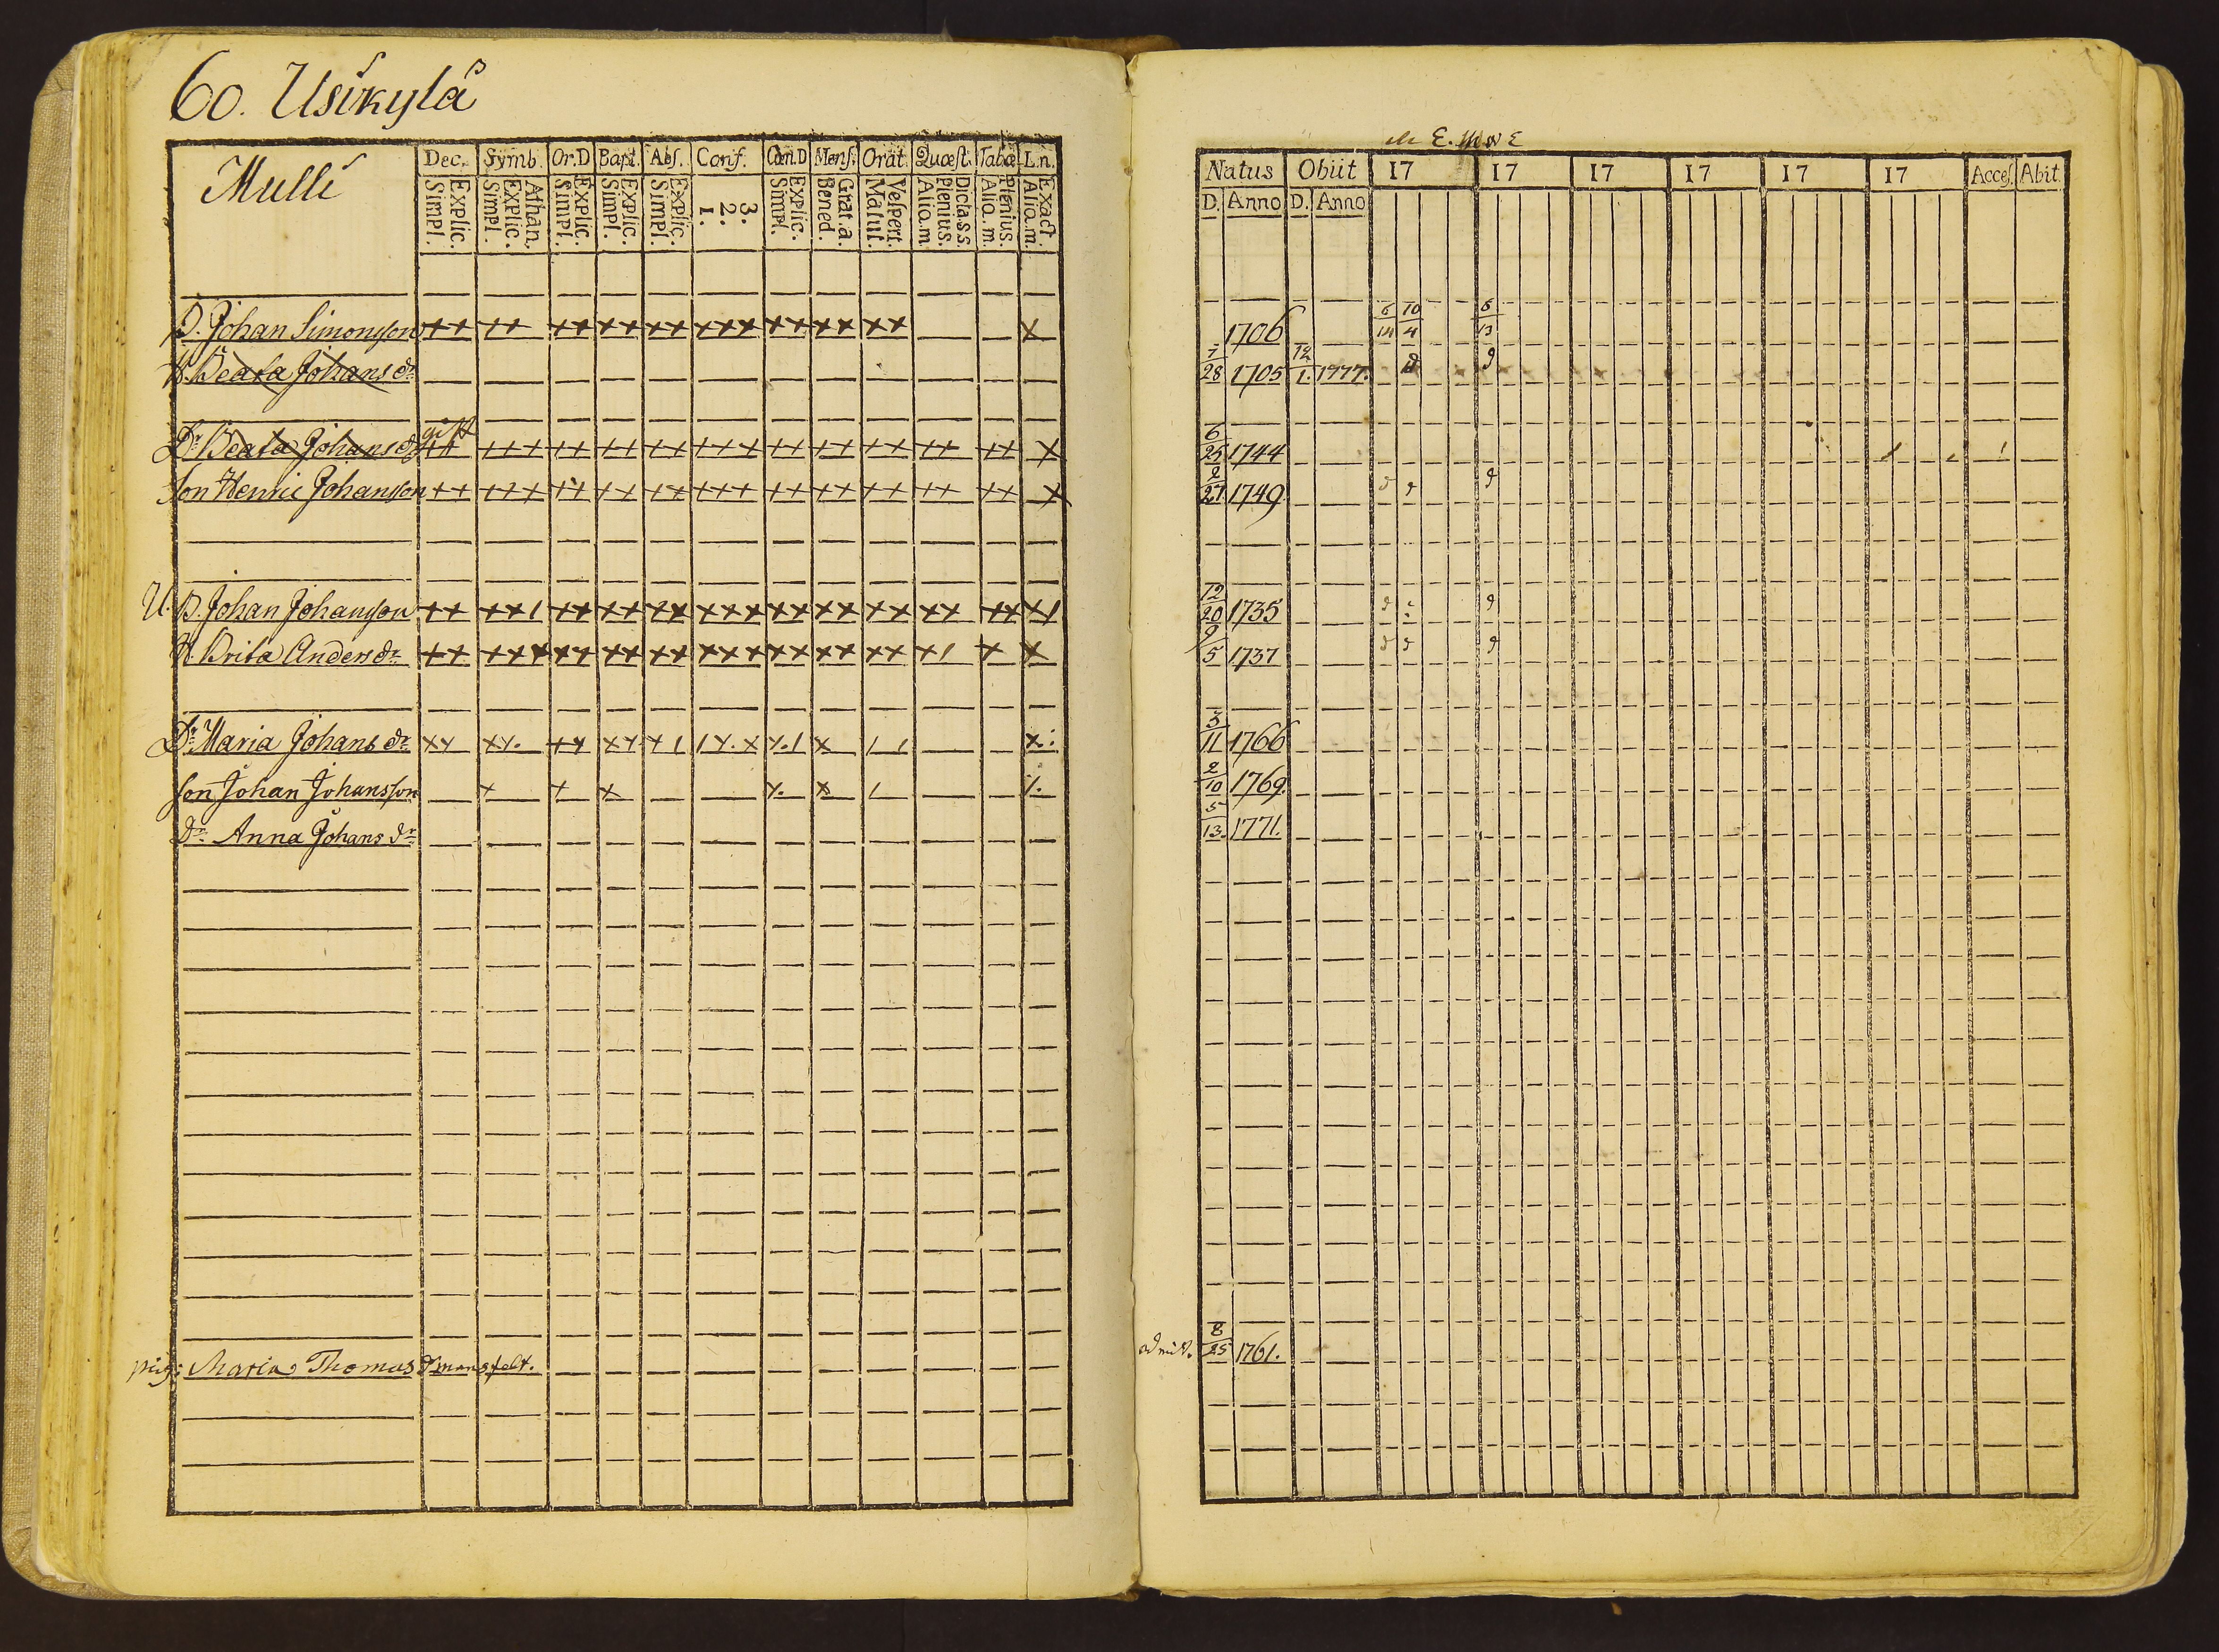 60. Usikylä
Mulli
Dec. Symb. Or.D Bapt. Abs. Conf. Cœn.D Mens. Orat. Quæst. Tabœ L.n.
Explic. Simpl. Athan. Explic. Simpl. Explic. Simpl. Explic. Simpl. Explic. Simpl. 3. 2. 1. Explic. Simpl. Grat.a. Bened. Vespert. Matut. D.class. Plenius. Alio.m. Plenius. Alio.m. Exact. Alio.m.
B. Johan Simonsson ++ ++ ++ ++ ++ +++ ++ ++ ++ x
H. Beata Johans dr
gift
Dr Beata Johans dr ++ +++ ++ ++ ++ +++ ++ ++ ++ ++ ++ x
Son Henric Johansson ++ +++ ++ ++ ++ +++ ++ ++ ++ ++ ++ x
U. B. Johan Johansson ++ ++1 ++ ++ ++ +++ ++ ++ ++ ++ ++ +1
H. Brita Anders dr ++ +++ ++ ++ ++ +++ ++ ++ ++ +1 + x
Dr Maria Johans dr
Son Johan Johansson
Dr Anna Johans dr
pig: Maria Thomas dr
Natus Obiit 17 17 17 17 17 17 Acces. Abit
D. Anno D. Anno
1706 6/14 10/4 6/13
7/28 1705 12/1. 1777.
6/25 1744
2/27 1749
12/20 1735
9/5 1737
3/11 1766
2/10 1769.
5/13. 1771.
8/25 1761.